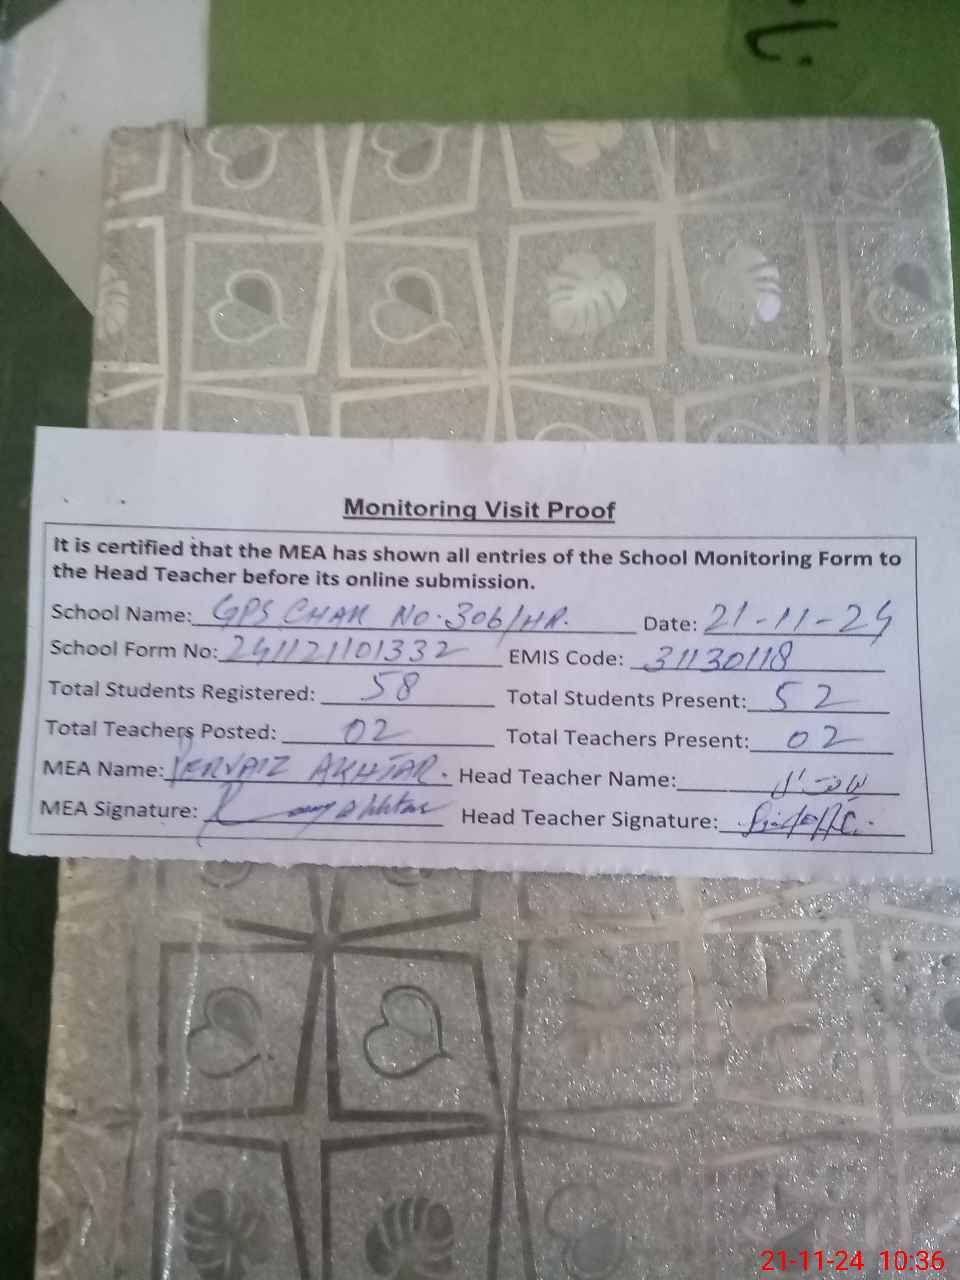 Monitoring Visit Proof
It is certified that the MEA has shown all entries of the School Monitoring Form to
the Head Teacher before its online submission.
School Name: GPS CHAK No. 306/HR. Date: 21-11-24
School Form No: 241121101332 EMIS Code: 31130118
Total Students Registered: 58 Total Students Present: 52
Total Teachers Posted: 02 Total Teachers Present: 02
MEA Name: PERVAIZ AKHTAR. Head Teacher Name:
MEA Signature: Head Teacher Signature:
21-11-24 10:36